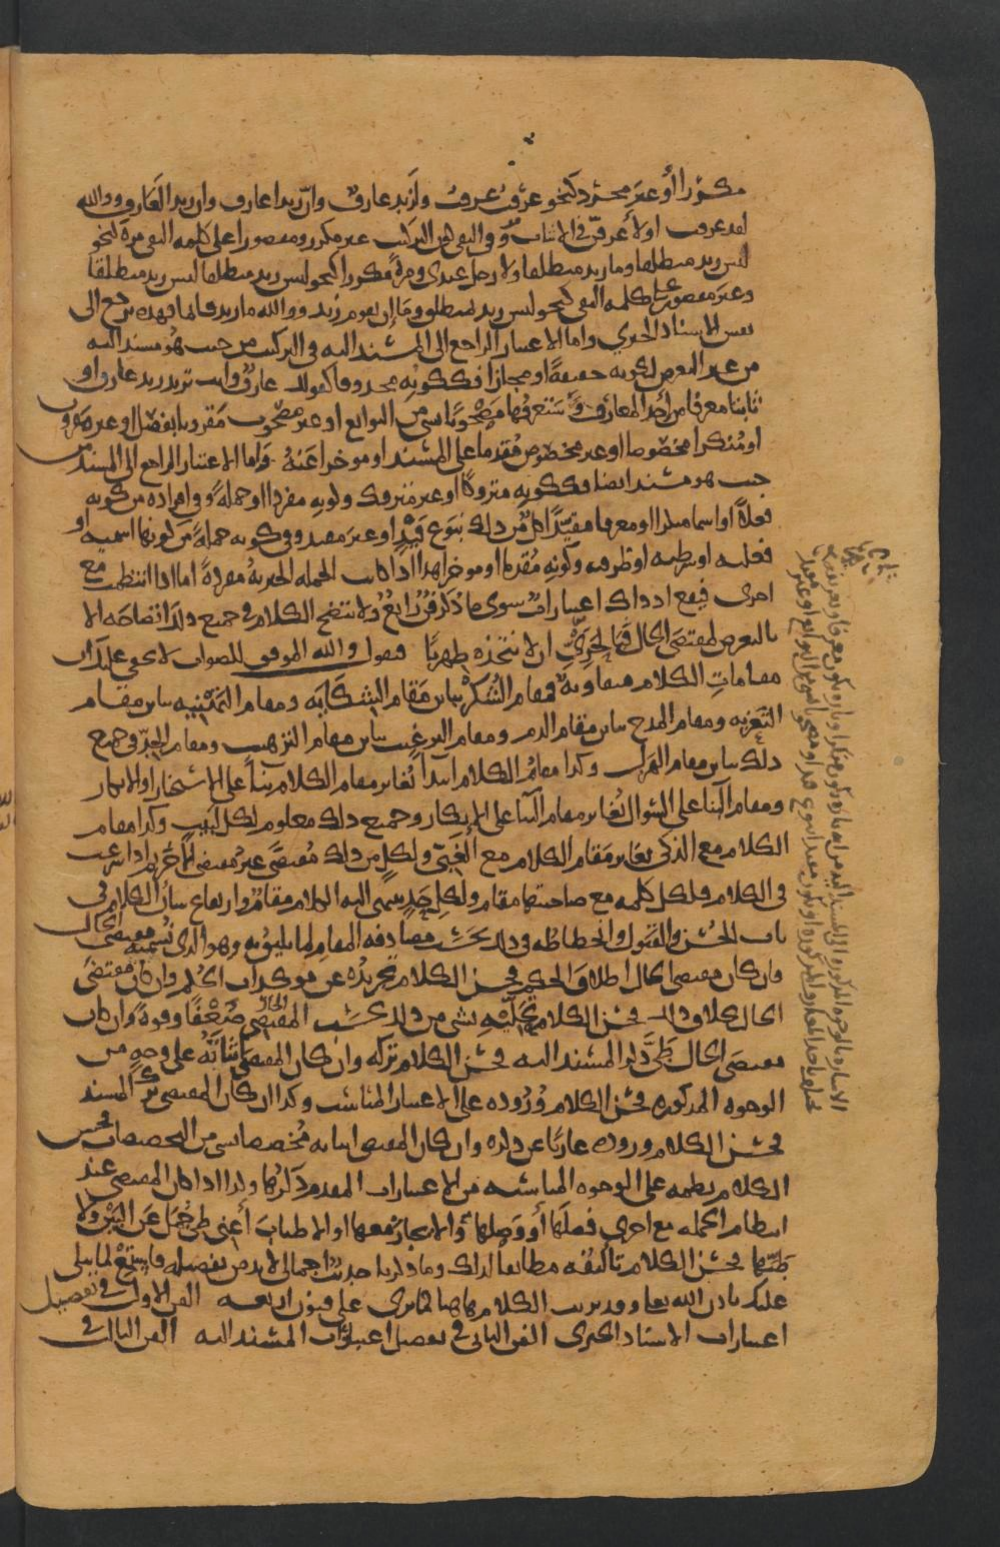 مكررا أو غير مجرد كنحو عرف عرفت ولزيد عارف وإن زيدا عارف وإن زيدا لعارف ووالله
لقد عرفت أو لأعرفن في الإثبات وفي النفي كون التركيب غير مكرر ومقصورا على كلمة النفي مرة كنحو
ليس زيد منطلقا وما زيد منطلقا ولا رجل عندي ومرة مكررا كنحو ليس زيد منطلقا ليس زيد منطلقا
وغير مقصور على كلمة النفي كنحو ليس زيد بمنطلق وما إن يقوم زيد ووالله ما زيد قائما فهذه ترجع إلى
نفس الإسناد الخبري وأما الاعتبار الراجع إلى المسند إليه في التركيب من حيث هو مسند إليه
من غير التعرض لكونه حقيقة أو مجازا فككونه محذوفا كقولك عارف وأنت تريد زيد عارف أو
ثابتا معرفا من أحد المعارف وستعرفها مصحوبا بشيء من التوابع أو غير مصحوب مقرونا بفصل أو غير مقرون
أو منكرا مخصوصا أو غير مخصوص مقدما على المسند أو مؤخرا عنه وأما الاعتبار الراجع إلى المسند من
حيث هو مسند أيضا فككونه متروكا أو غير متروك وكونه مفردا أو جملة وفي إفراده من كونه
فعلا أو اسما منكرا أو معرفا مقيدا كل من ذلك بنوع قيد أو غير مقيد وفي كونه جملة من كونها اسمية أو
فعلية أو شرطية أو ظرفية وكونه مقدما أو مؤخرا هذا إذا كانت الجملة الخبرية مفردة أما إذا انتظمت مع
أخرى فيقع إذ ذاك اعتبارات سوى ما ذكر فن رابع ولا يتضح الكلام في جميع ذلك اتضاحه إلا
بالتعرض لمقتضى الحال فبالحري أن لا نتخذه ظهريا فنقول والله الموفق للصواب لا يخفى عليك أن
مقامات الكلام متفاوتة فمقام الشكر يباين مقام الشكاية ومقام التهنئة يباين مقام
التعزية ومقام المدح يباين مقام الذم ومقام الترغيب يباين مقام الترهيب ومقام الجد في جميع
ذلك يباين مقام الهزل وكذا مقام الكلام ابتداء يغاير مقام الكلام بناء على الاستخبار أو الإنكار
ومقام البناء على السؤال يغاير مقام البناء على الإنكار وجميع ذلك معلوم لكل لبيب وكذا مقام
الكلام مع الذكي يغاير مقام الكلام مع الغبي ولكل من ذلك مقتضى غير مقتضى الآخر ثم إذا شرعت
في الكلام فلكل كلمة مع صاحبتها مقام ولكل حد ينتهي إليه الكلام مقام وارتفاع شأن الكلام في
باب الحسن والقبول وانحطاطه في ذلك بحسب مصادفة المقام لما يليق به وهو الذي نسميه مقتضى الحال
فإن كان مقتضى الحال إطلاق الحكم فحسن الكلام تجريده عن مؤكدات الحكم وإن كان مقتضى
الحال بخلاف ذلك فحسن الكلام تحليه بشيء من ذلك بحسب المقتضى ضعفا وقوة وإن كان
مقتضى الحال طي ذكر المسند إليه فحسن الكلام تركه وإن كان المقتضى إثباته على وجه من
الوجوه المذكورة فحسن الكلام وروده على الاعتبار المناسب وكذا إن كان المقتضى ترك المسند
فحسن الكلام وروده عاريا عن ذكره وإن كان المقتضى إثباته مخصصا بشيء من التخصيصات فحسن
الكلام نظمه على الوجوه المناسبة من الاعتبارات المقدم ذكرها وكذا إذا كان المقتضى عند
انتظام الجملة مع أخرى فصلها أو وصلها والإيجاز معها أو الإطناب أعني طي جمل عن البين ولا
طيها فحسن الكلام تأليفه مطابقا لذلك وما ذكرناه حديث إجمالي لا بد من تفصيله فاستمع لما يتلى
عليك بإذن الله تعالى وقد ترتب الكلام هاهنا كما ترى على فنون أربعة الفن الأول في تفصيل
اعتبارات الإسناد الخبري الفن الثاني في تفصيل اعتبارات المسند إليه الفن الثالث في